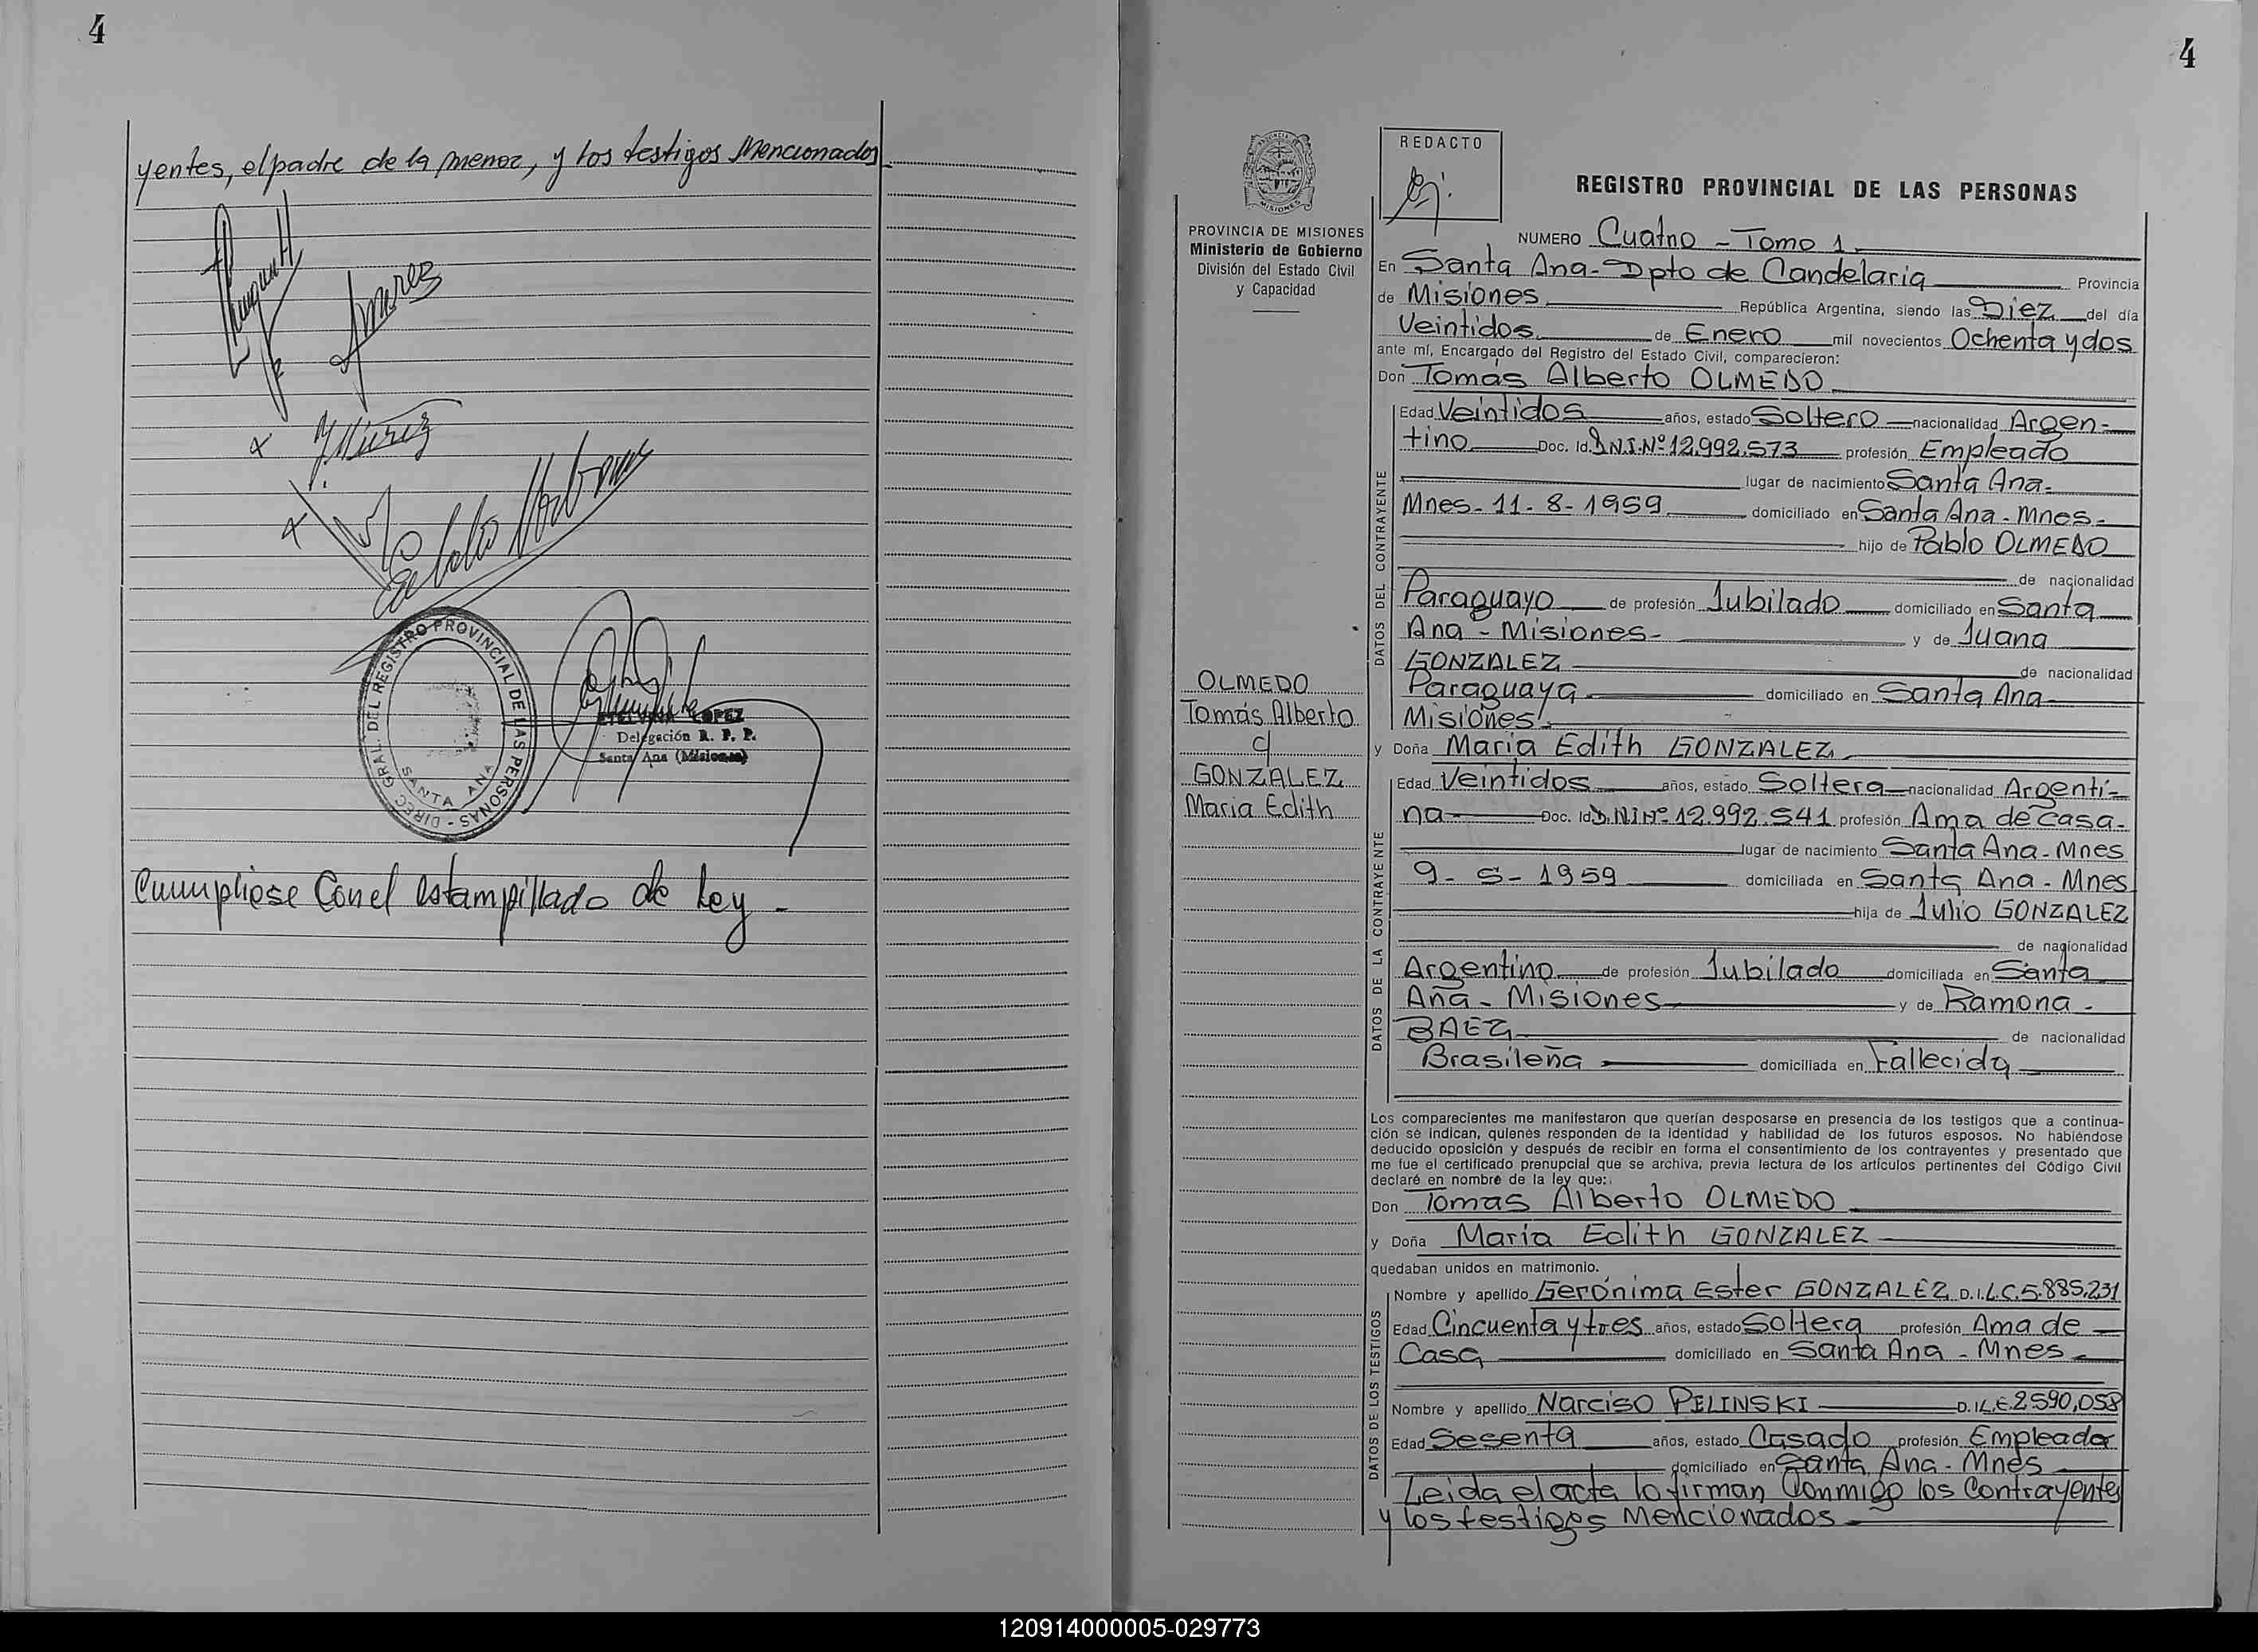 4
yentes, el padre de la menor, y los testigos Mencionados
DIREC. GRAL. DEL REGISTRO PROVINCIAL DE LAS PERSONAS -
SANTA ANA
ETELVINA LOPEZ
Delegación R. P. P.
Santa Ana (Misiones)
Cumpliose Con el estampillado de Ley -
4
MISIONES
PROVINCIA DE MISIONES
Ministerio de Gobierno
División del Estado Civil
y Capacidad
REDACTO
REGISTRO PROVINCIAL DE LAS PERSONAS
NUMERO Cuatro - Tomo 1
En Santa Ana - Dpto de Candelaria Provincia
de Misiones República Argentina, siendo las Diez del día
Veintidos de Enero mil novecientos Ochenta y dos
ante mí, Encargado del Registro del Estado Civil, comparecieron:
Don Tomás Alberto OLMEDO
DATOS DEL CONTRAYENTE
Edad Veintidos años, estado Soltero nacionalidad Argen-
tino Doc. Id. D.N.I. Nº 12.992.573 profesión Empleado
lugar de nacimiento Santa Ana-
Mnes - 11 - 8 - 1959 domiciliado en Santa Ana - Mnes -
hijo de Pablo OLMEDO
de nacionalidad
Paraguayo de profesión Jubilado domiciliado en Santa
Ana - Misiones - y de Juana
GONZALEZ de nacionalidad
Paraguaya domiciliado en Santa Ana
Misiones
OLMEDO
Tomás Alberto
c/
GONZALEZ
Maria Edith
y Doña Maria Edith GONZALEZ
DATOS DE LA CONTRAYENTE
Edad Veintidos años, estado Soltera nacionalidad Argenti-
na Doc. Id. D.N.I Nº 12.992.541 profesión Ama de casa -
lugar de nacimiento Santa Ana - Mnes
9 - 5 - 1959 domiciliada en Santa Ana - Mnes
hija de Julio GONZALEZ
de nacionalidad
Argentino de profesión Jubilado domiciliada en Santa
Ana - Misiones y de Ramona -
BAEZ de nacionalidad
Brasileña domiciliada en Fallecida
Los comparecientes me manifestaron que querían desposarse en presencia de los testigos que a continua-
ción se indican, quienes responden de la identidad y habilidad de los futuros esposos. No habiéndose
deducido oposición y después de recibir en forma el consentimiento de los contrayentes y presentado que
me fue el certificado prenupcial que se archiva, previa lectura de los artículos pertinentes del Código Civil
declaré en nombre de la ley que:
Don Tomas Alberto OLMEDO
y Doña Maria Edith GONZALEZ
quedaban unidos en matrimonio.
DATOS DE LOS TESTIGOS
Nombre y apellido Gerónima Ester GONZALEZ D.I. L.C. 5.885.231
Edad Cincuenta y tres años, estado Soltera profesión Ama de
Casa domiciliado en Santa Ana - Mnes
Nombre y apellido Narciso PELINSKI D.I. L.E. 2.590,058
Edad Sesenta años, estado Casado profesión Empleador
domiciliado en Santa Ana - Mnes
Leida el acta lo firman Conmigo los Contrayentes
y los testigos Mencionados
120914000005-029773